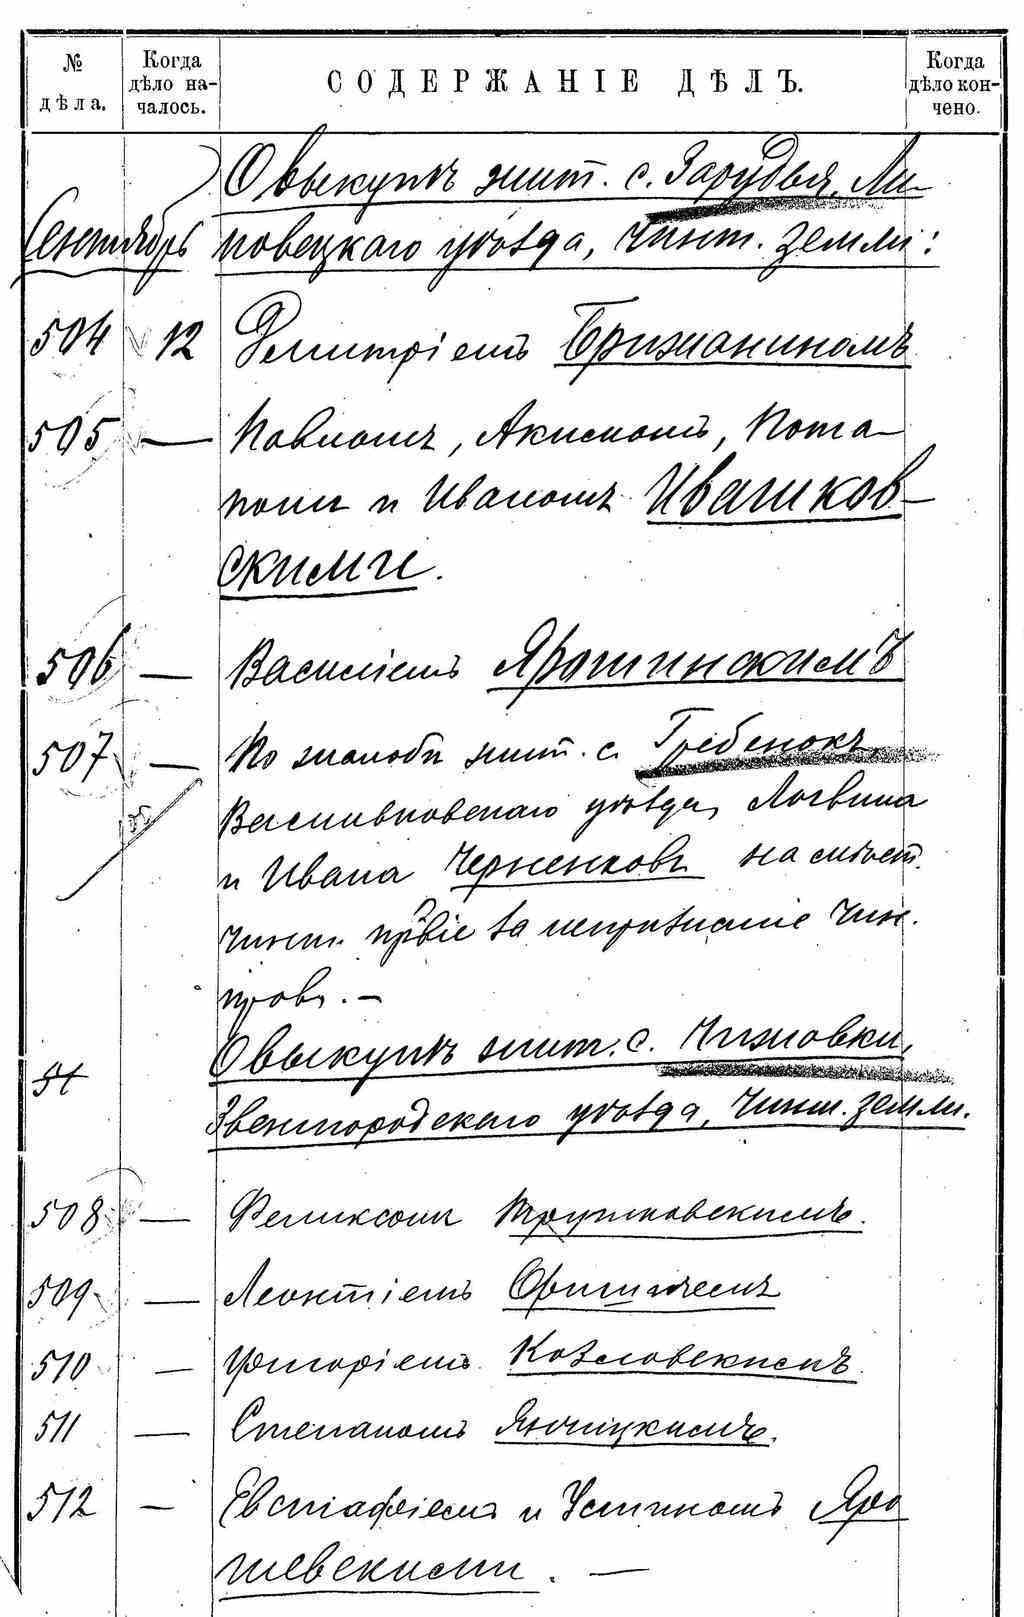 № дѣла.
Когда дѣло началось.
СОДЕРЖАНІЕ ДѢЛЪ.
Когда дѣло кончено.
О выкупѣ жит. с. Зарудья, Ли-
Сентябрь повецкаго уѣзда, чинш. земли:
504 12 Дмитріемъ Брижаниномъ
505 — Павломъ, Акимомъ, Пота-
помъ и Иваномъ Ивашков-
скими.
506 — Василіемъ Ярошинскимъ
507 — По жалобѣ жит. с. Гребенокъ
Васильковскаго уѣзда, Логвина
и Ивана Черненковъ на мѣст.
чинш. пр̃віе за непризнаніе чин.
правъ. —
О выкупѣ жит. с. Чижовки,
51
Звенигородскаго уѣзда, чинш. земли.
508 — Феликсомъ
509 — Леонтіемъ
510 — Григоріемъ Козловскимъ.
511 — Степаномъ
512 — Евстафіемъ и Устиномъ Яро
шевскими. —